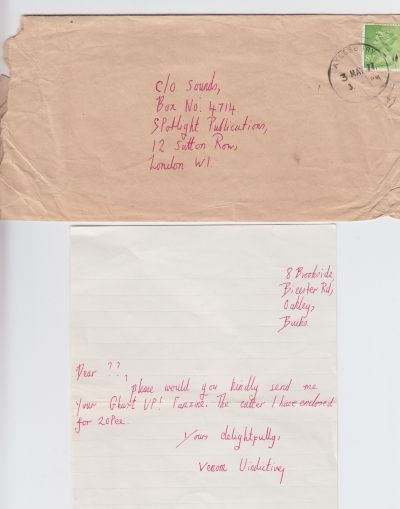 AYLESBURY
3 MAY 7
PM
c/o Sounds,
Box No. 4714
Spotlight Publications,
12 Sutton Row,
London W1.
8 Brookside,
Bicester Rd,
Oakley,
Bucks.
Dear ??,
please would you kindly send me
your Ghast UP! Fanzine. The cutter I have enclosed
for 20Pee.
Yours delightfully,
Venom Vindictive